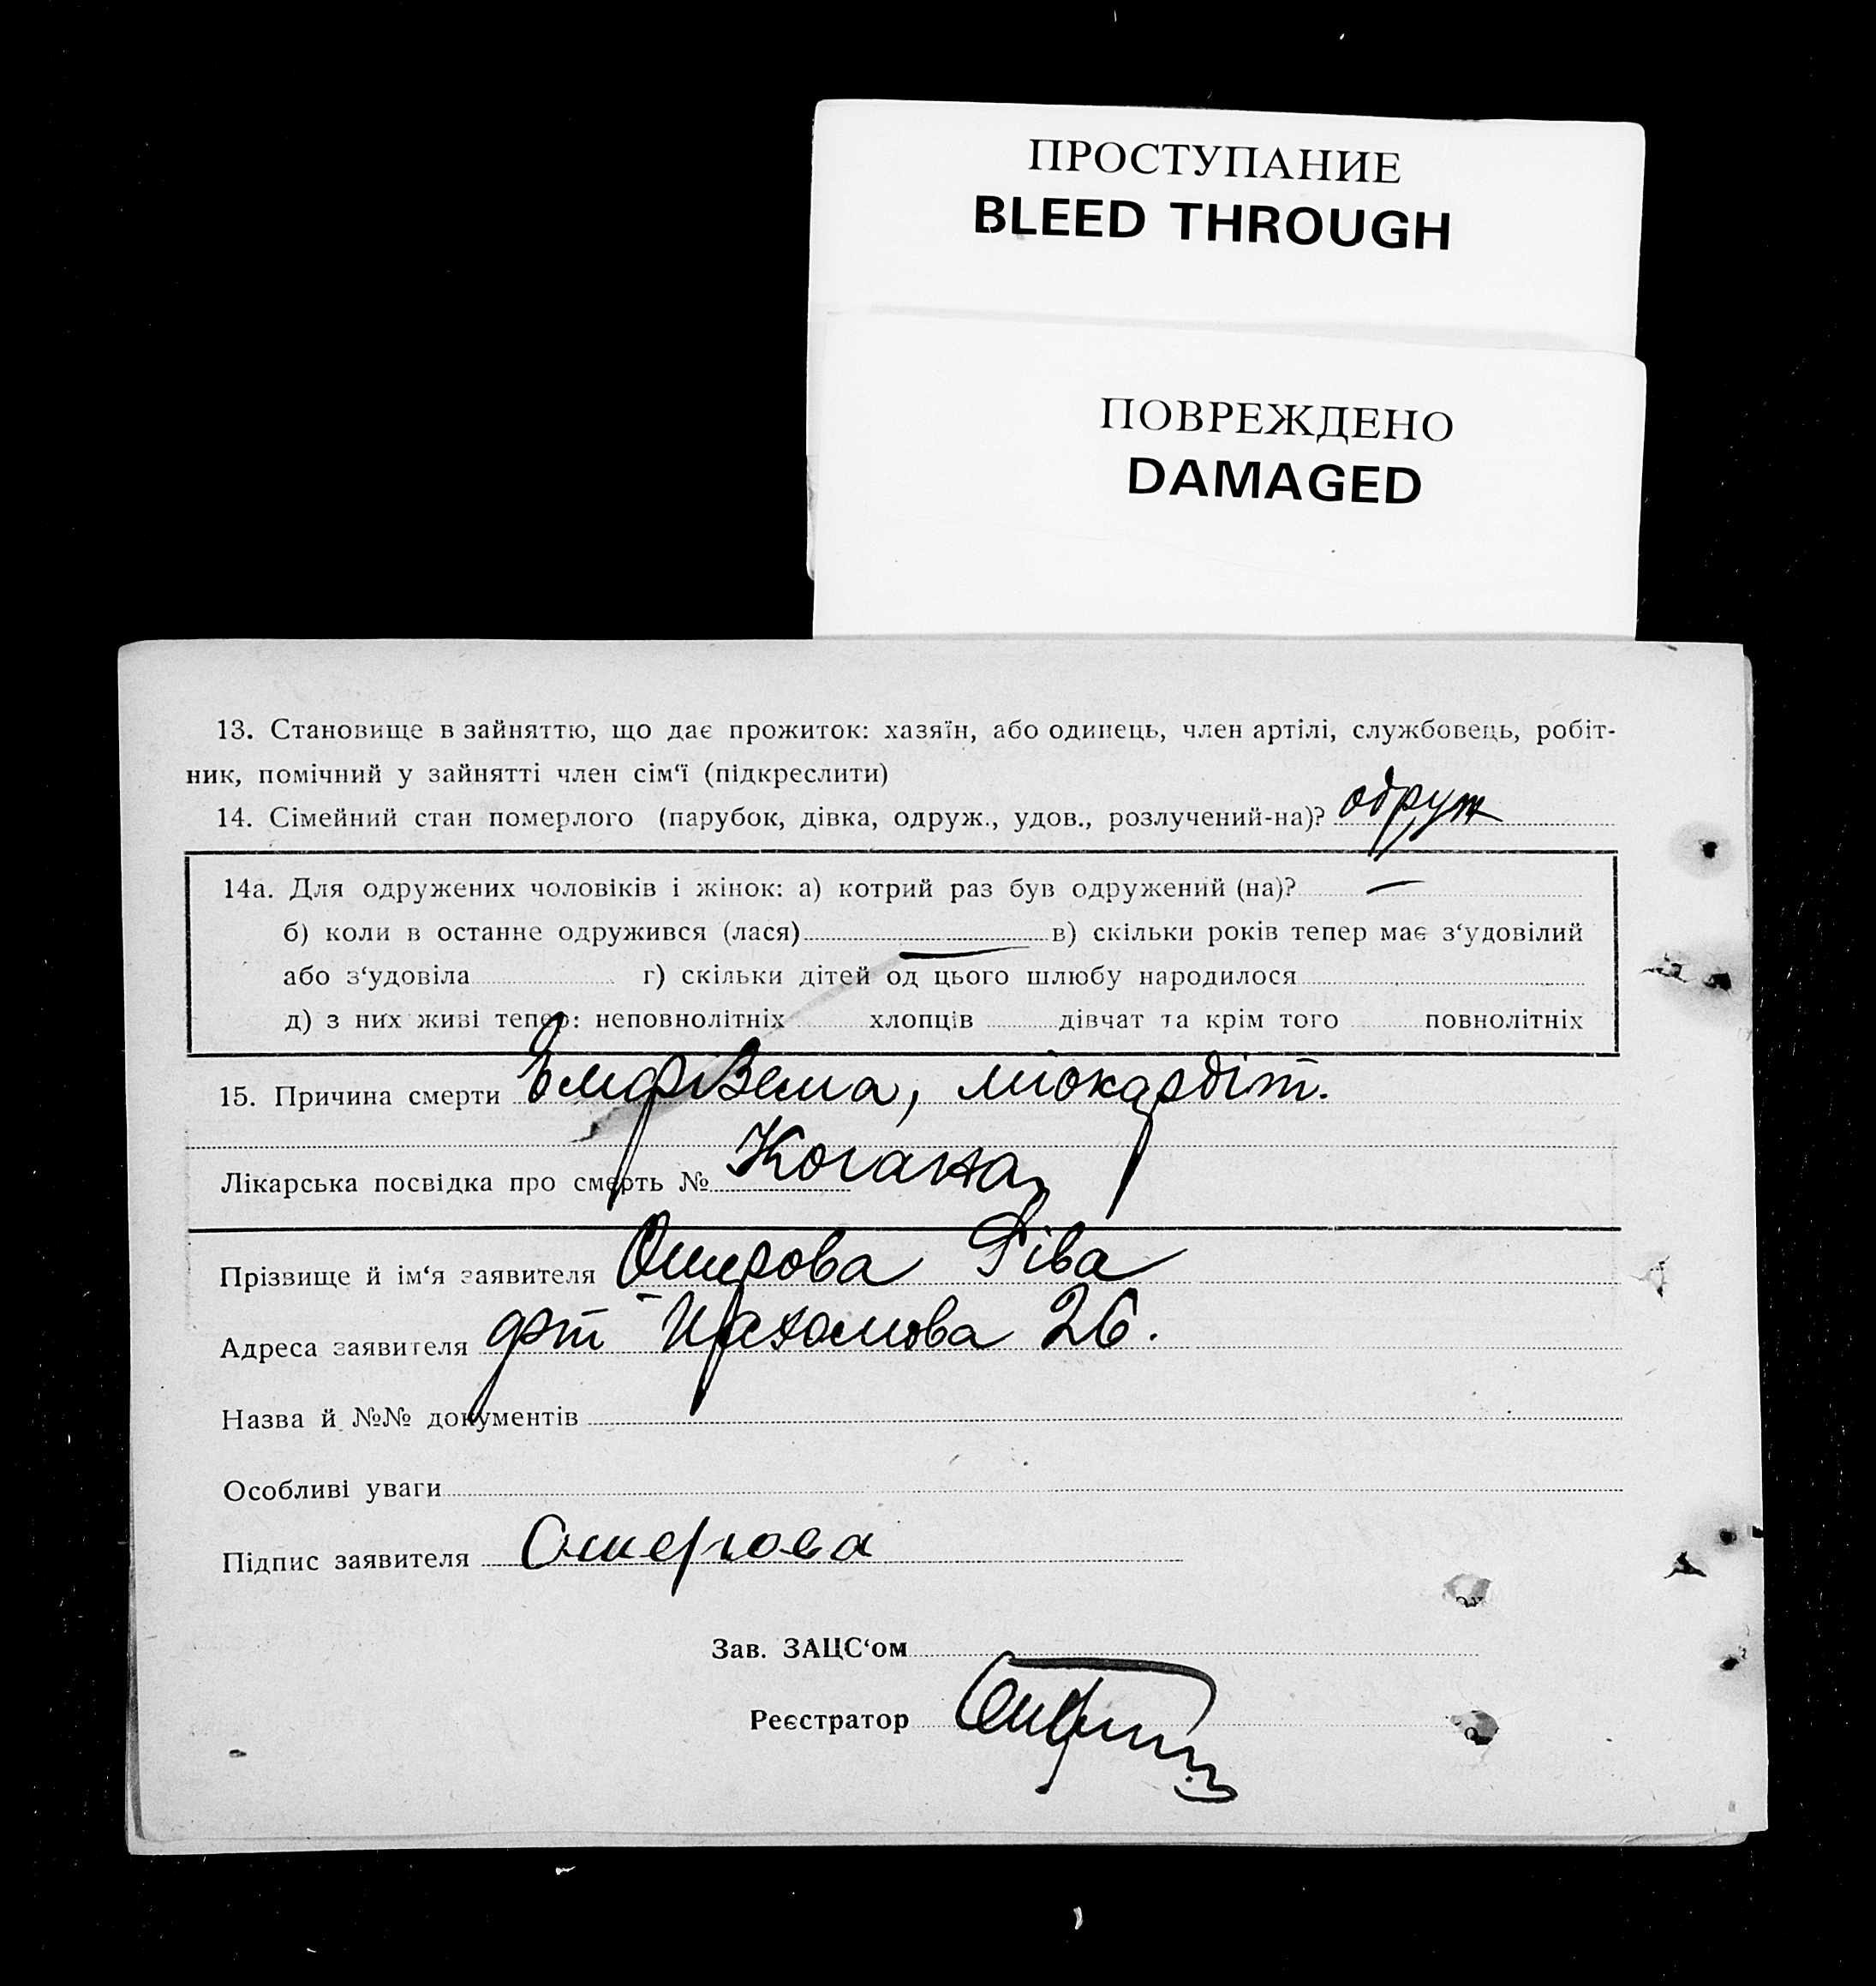 ПРОСТУПАНИЕ
BLEED THROUGH
ПОВРЕЖДЕНО
DAMAGED
13. Становище в зайняттю, що дає прожиток: хазяїн, або одинець, член артілі, службовець, робіт-
ник, помічний у зайнятті член сім‘ї (підкреслити)
14. Сімейний стан померлого (парубок, дівка, одруж., удов., розлучений-на)? одруж
14а. Для одружених чоловіків і жінок: а) котрий раз був одружений (на)? —
б) коли в останнє одружився (лася) — в) скільки років тепер має з‘удовілий
або з‘удовіла г) скільки дітей од цього шлюбу народилося
д) з них живі тепер: неповнолітніх хлопців дівчат та крім того повнолітніх
15. Причина смерти Емфізема, міокардіт.
Лікарська посвідка про смерть № Когана
Прізвище й ім‘я заявителя Ошерова Ріва
Адреса заявителя 26.
Назва й №№ документів
Особливі уваги
Підпис заявителя Ошерова
Зав. ЗАЦС‘ом
Реєстратор